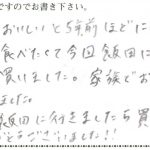 ですのでお書き下さい。
おいしいと5年前ほどに
食べたくて今回飯田に
買いました。家族でお
ました。
飯田に行きましたら買
とうございました!!